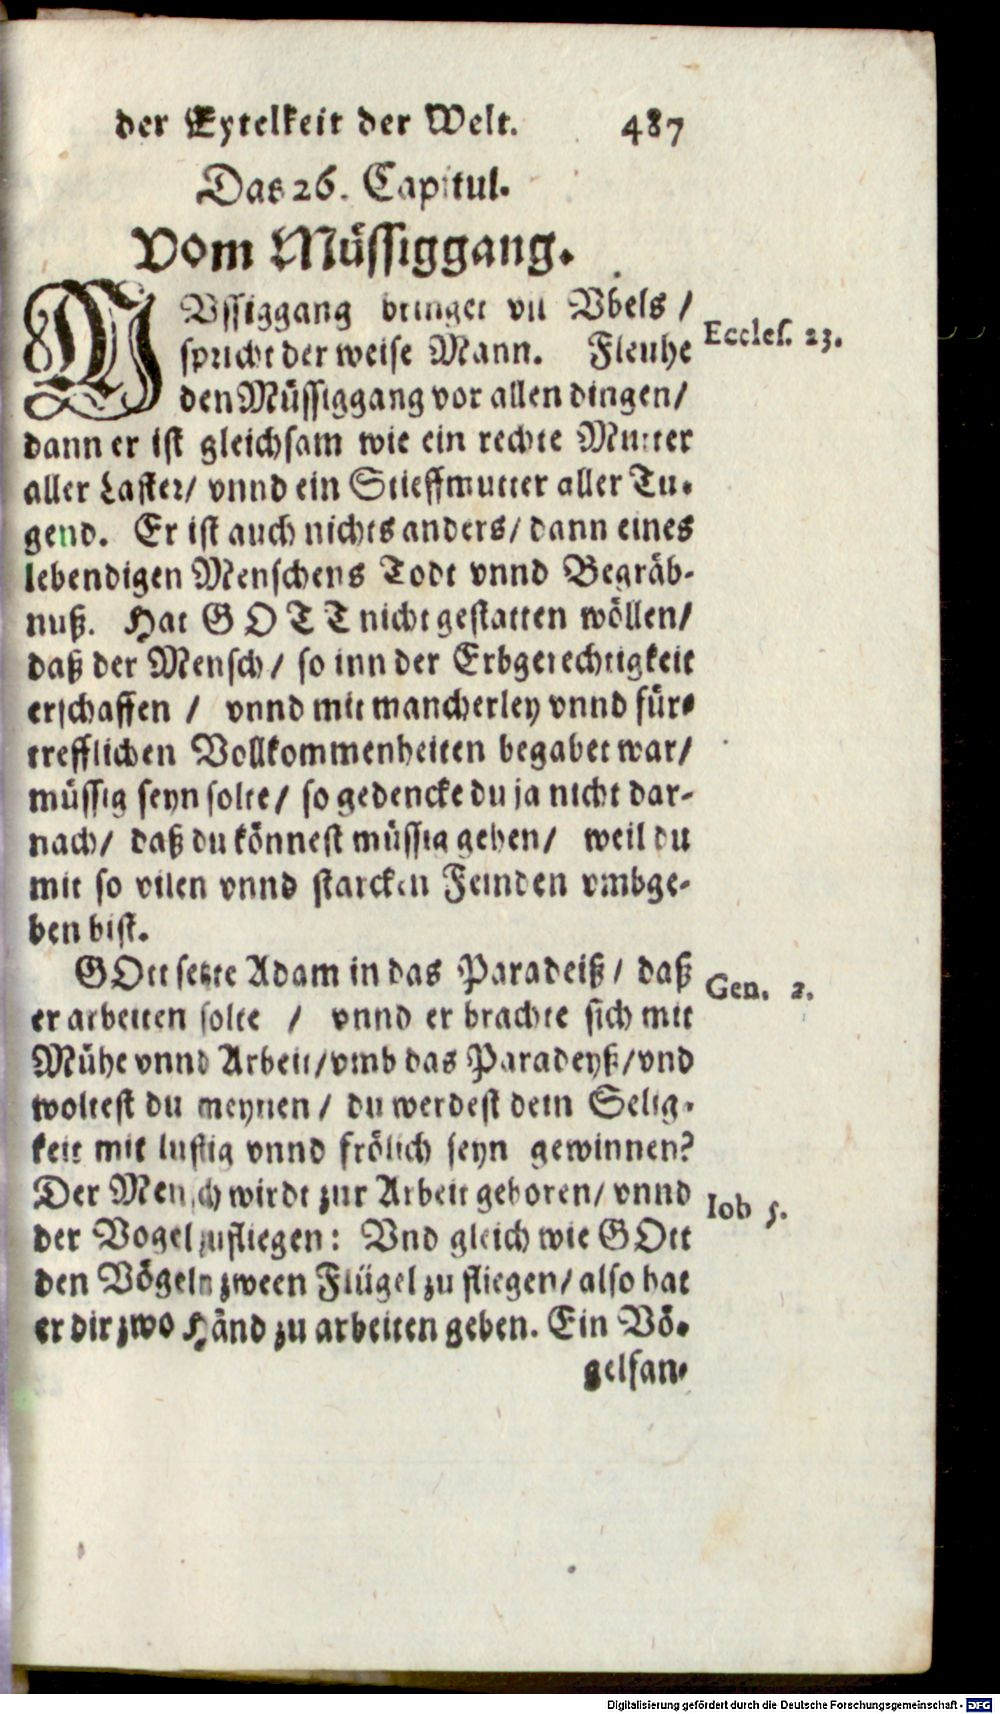 der Eytelkeit der Welt. 487
Das 26. Capitul.
Vom Müssiggang.
MVssiggang bringet vil Vbels /
spricht der weise Mann. Fleuhe
Eccles. 23.
den Müssiggang vor allen dingen/
dann er ist gleichsam wie ein rechte Mutter
aller Laster/ vnnd ein Stieffmutter aller Tu-
gend. Er ist auch nichts anders/ dann eines
lebendigen Menschens Todt vnnd Begräb-
nuß. Hat GOTT nicht gestatten wöllen/
daß der Mensch/ so inn der Erbgerechtigkeit
erschaffen / vnnd mit mancherley vnnd für-
trefflichen Vollkommenheiten begabet war/
müssig seyn solte/ so gedencke du ja nicht dar-
nach/ daß du könnest müssig gehen/ weil du
mit so vilen vnnd starcken Feinden vmbge-
ben bist.
GOtt setzte Adam in das Paradeiß/ daß
Gen. 2.
er arbeiten solte / vnnd er brachte sich mit
Mühe vnnd Arbeit/vmb das Paradeyß/vnd
woltest du meynen/ du werdest dein Selig-
keit mit lustig vnnd frölich seyn gewinnen?
Der Mensch wirdt zur Arbeit geboren/ vnnd
Iob 5.
der Vogel zufliegen: Vnd gleich wie GOtt
den Vögeln zween Flügel zu fliegen/ also hat
er dir zwo Händ zu arbeiten geben. Ein Vö-
gelfan-
Digitalisierung gefördert durch die Deutsche Forschungsgemeinschaft - DFG